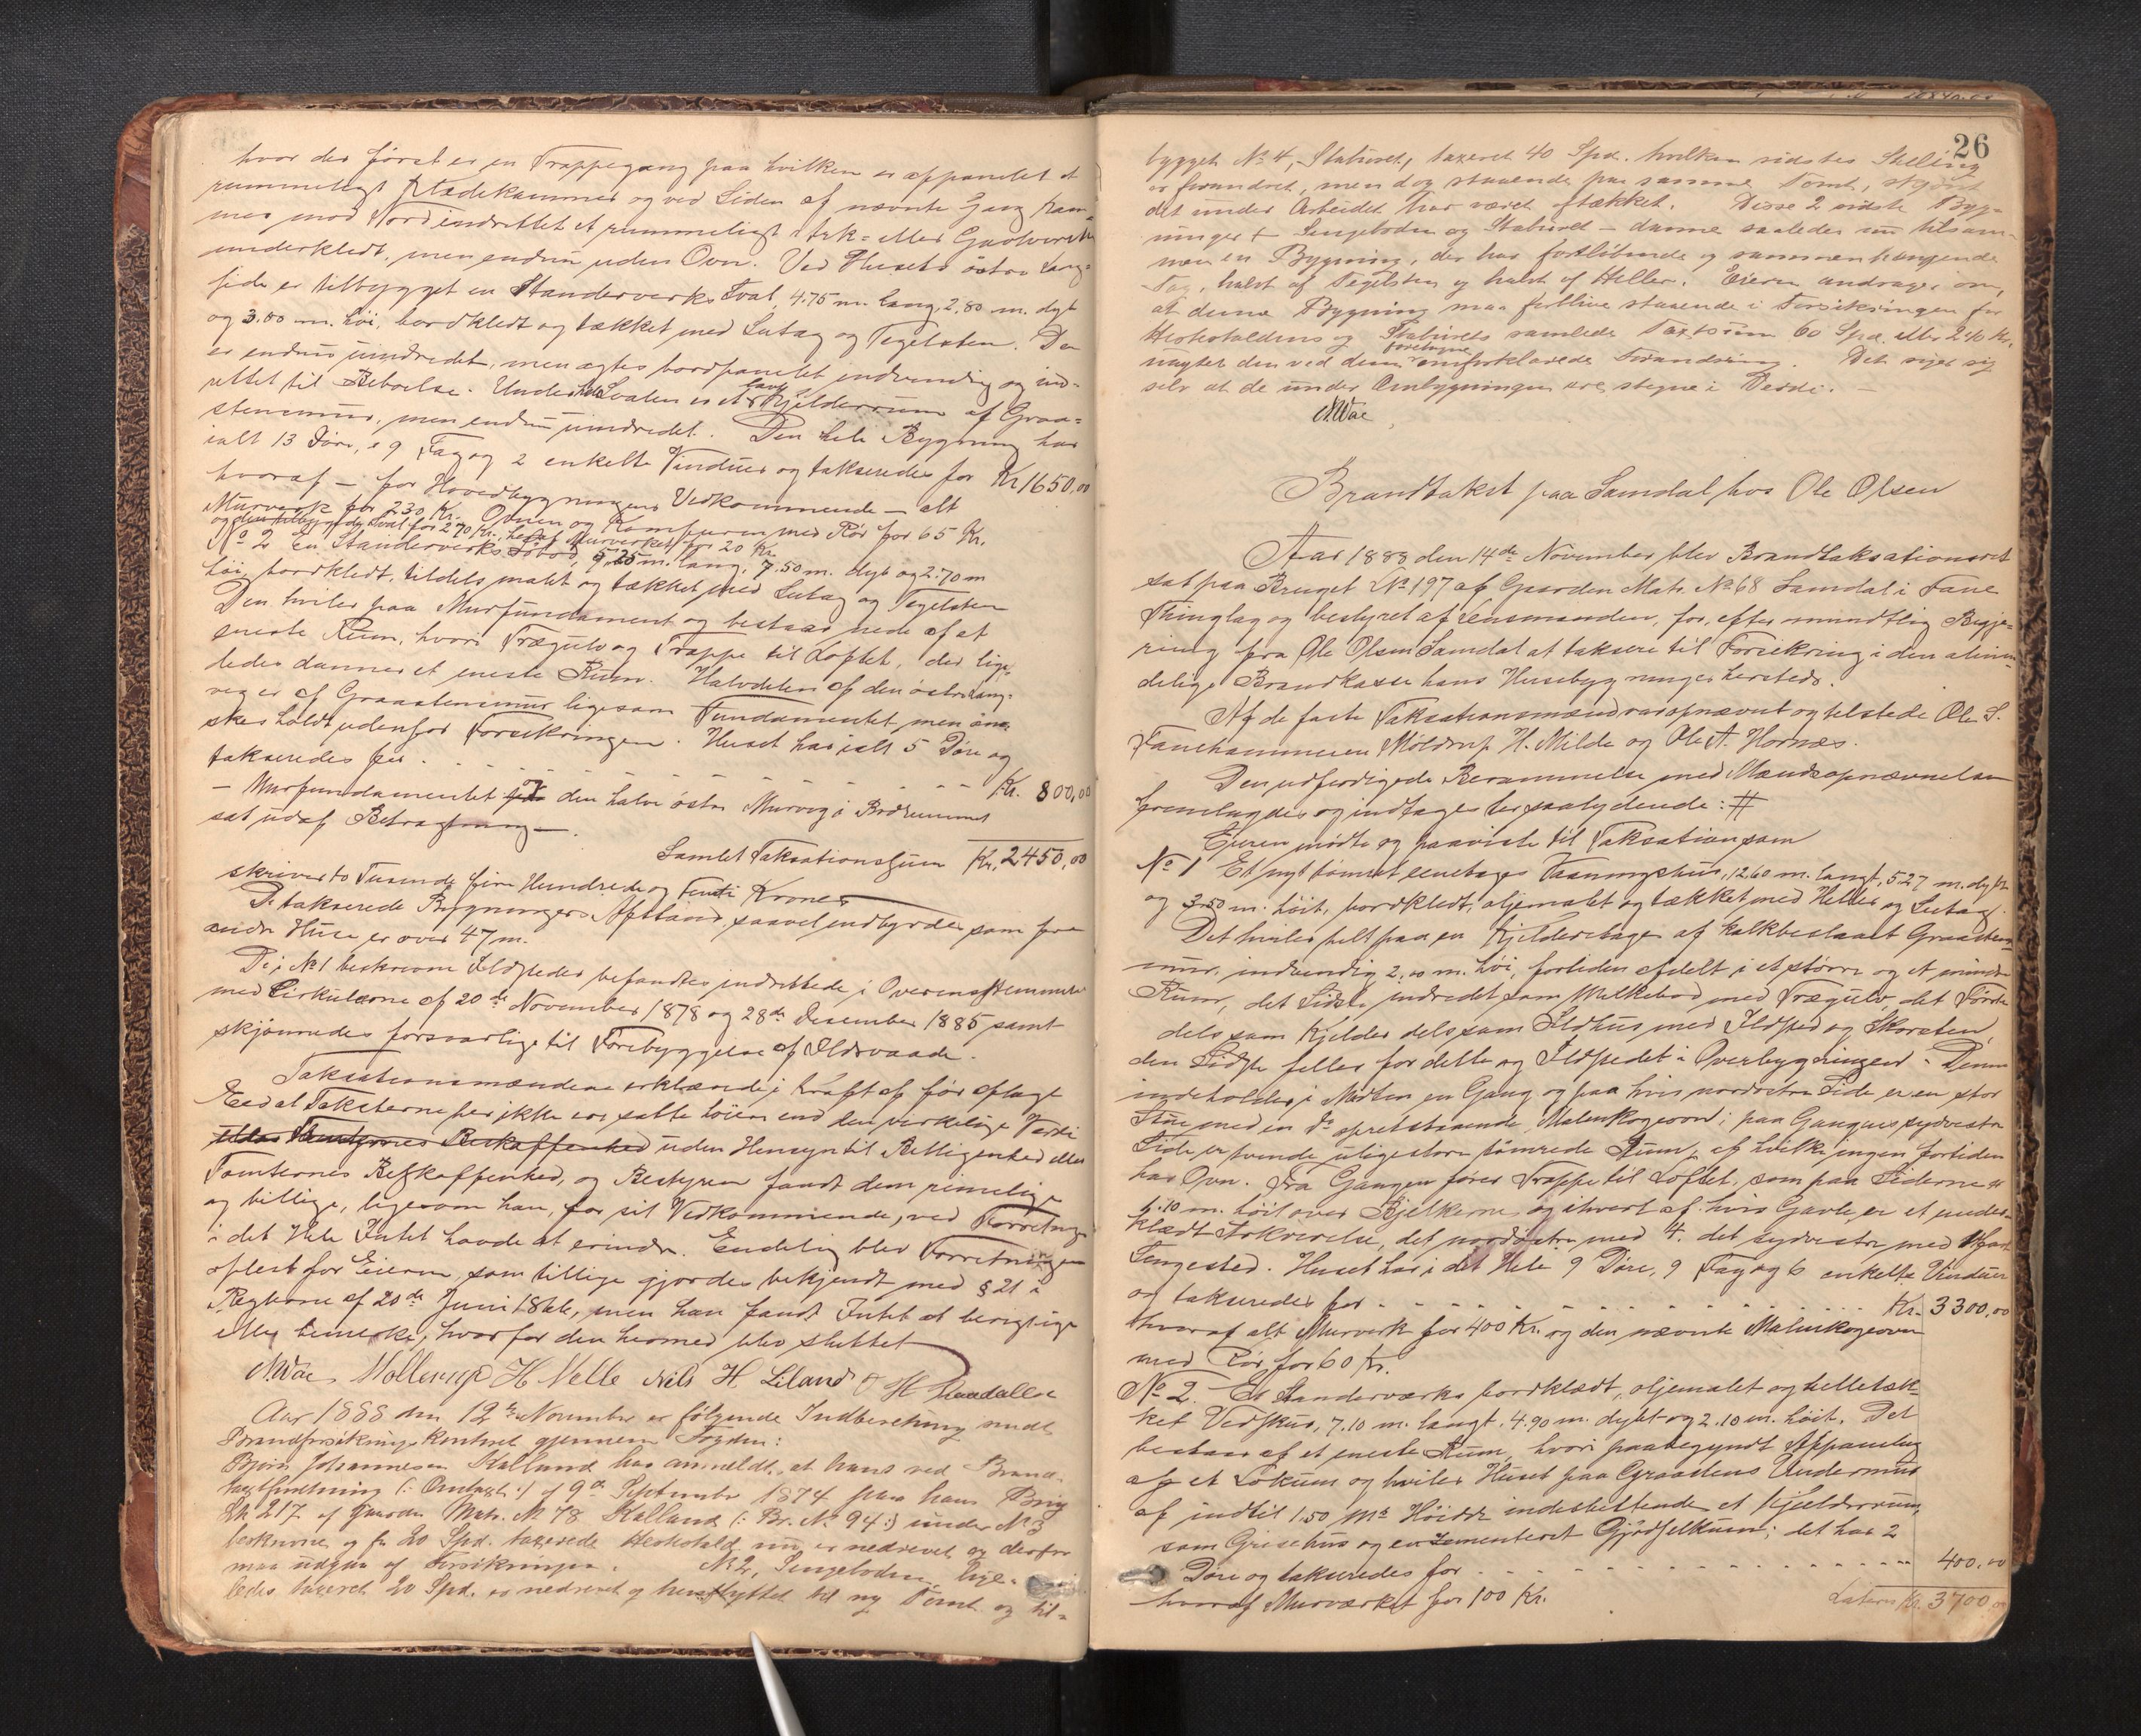 hvor der først er en Trappegang paa hvilken er oppanelet et
rummeligt Klædekammer og ved Siden af nævnte Gang Kam-
mer mod Nord indrettet et rummeligt Ark- eller Gavlværelse
underklædt, men endnu uden Ovn. Ved Husets østre Lang-
side er tilbygget en Standerverks Sval, 4.75 m. lang, 2,80 m. dyb
og 3.00 m. høi, bordklædt og tækket med Lutag og Tegelsten. Den
er endnu uindredet, men agtes bordpanelet indvendig og ind-
rettet til Beboelse. Under hele Svalen er et lavt Kjelderrum af Graa-
stensmur, men endnu uindredet. Den hele Bygning har
ialt 13 Døre, 9 Fag og 2 enkelte Vinduer og takseredes for Kr 1650,00
hvoraf – for Hovedbygningens Vedkommende – alt
Murverk for 230 Kr. Ovnen og Komfuren med Rør for 65 Kr.
og den tilbyggede Sval for 270 Kr., heraf Murverket for 20 Kr.
No 2 En Standerverks Bod, 9,25 m. lang, 7.50 m. dyb og 2.70 m
høi, bordklædt, tildels malet og tækket med Lutag og Tegelsten
Den hviler paa Murfundament og bestaar nede af et
eneste Rum, hvori Trægulv og Trappe til Loftet, der lige-
ledes danner et eneste Rum. Halvdelen af den østre Lang-
veg er af Graastensmur ligesom Fundamentet men øn-
skes holdt udenfor Forsikringen. Huset har ialt 5 Døre og
takseredes for . . . . . . . . Kr. 800,00
– Murfundamentet og den halve østre Murveg i Bodrummet
sat udaf Betragtning –.
Samlet Taksationssum Kr. 2450,00
skriver to Tusinde fire Hundrede og Femti Kroner
De takserede Bygningers Afstand saavel indbyrdes som fra
andre Huse er over 47 m.
De i No 1 beskrevne Ildsteder befandtes indrettede i Overensstemmelse
med Cirkulærerne af 20de November 1878 og 28de Desember 1885 samt
skjønnedes forsvarlige til Forebyggelse af Ildsvaade.
Taksationsmændene erklærede i Kraft af før aflagt
Eed at Taksterne her ikke ere satte høiere end den virkelige Værdi
eller Tomternes Beskaffenhed uden Hensyn til Rettigenhed eller
Tomternes Beskaffenhed, og Bestyren fandt dem rimelige
og billige, ligesom han, for sit Vedkommende, ved Forretningen
i det Hele Intet havde at erindre. Endelig blev Forretningen
oplæst for Eieren som tillige gjordes bekjendt med § 21 i
Reglerne af 20de Juni 1866, men han fandt Intet at berigtige
eller bemerke, hvorfor den hermed blev sluttet
N. Wae Mollerup H Velle Nils H. Liland
Aar 1888 den 12te November er følgende Indberetning sendt
Brandforsikringskontoret gjennem Fogden:
Bjørn Johannesen Kalland har anmeldt, at hans ved Brand-
taxtforretning (: Omtaxt :) af 9de September 1874 paa hans Brug
LN 217 af Gaarden Matr. No 78 Kalland (: Br. No 94 :) under No 3
beskrevne og for 20 Spd. taxerede Hestestald nu er nedrevet og derfor
maa udgaa af Forsikringen. No 2, Sengeboden, lige-
ledes taxeret 20 Spd. er nedrevet og henflyttet til ny Tomt og til-
26
bygget No 4, Staburet, taxeret 40 Spd. hvilken sidstes Stilling
er forandret, men dog staaende paa samme Tomt,
det under Arbeidet har været aftækket. Disse 2 sidste Byg-
ninger – Sengeboden og Staburet – danne saaledes nu tilsam-
men en Bygning, der har fortløbende og sammenhængende
Tag, halvt af Tegelsten og halvt af Heller. Eieren andrager om,
at denne Bygning maa forblive staaende i Forsikringen for
Hestestaldens og Staburets samlede Taxtsum 60 Spd. eller 240 Kr.
uagtet den ved dem foretagne omforklarede Forandring. Det siger sig
selv at de under Ombygningen ere stegne i Værdi. –
N. Wae
Brandtakst paa Samdal hos Ole Olsen
Aar 1888 den 14de November blev Brandtaksationsret
sat paa Bruget LNo 197 af Gaarden Matr. No 68 Samdal i Fane
Thinglag og bestyret af Lensmanden, for, efter mundtlig Begjæ-
ring fra Ole Olsen Samdal at taksere til Forsikring i den almin-
delige Brandkasse hans Husebygninger hersteds.
Af de faste Taksationsmænd var opnævnt og tilstede Ole S.
Fanehammeren Møldrup H. Milde og Ole A. Hornæs.
Den udfærdigede Berammelse med Mændsopnævnelsen
fremlagdes og indtages her saalydende: #
Eieren mødte og paaviste til Taksation som
No 1 Et nyt tømret eenetages Vaaningshus, 12.60 m. langt, 5.27 m. dybt
og 3.50 m. høit, bordklædt, oljemalet og tækket med Heller og Lutag.
Det hviler helt paa en Kjelderetage af kalkbeslaaet Graastens-
mur, indvendig 2.00 m. høi, fortiden afdelt i et større og et mindre
Rum, det Sidste indredet som Melkebod med Trægulv, det Første
dels som Kjelder dels som Ildhus med Ildsted og Skorsten,
den Sidste felles for dette og Ildstedet i Overbygningen. Denne
indeholder i Midten en Gang og paa hvis nordostre Side er en stor
Stue med en do opretstaaende Malmkogeovn; paa Gangens sydvestre
Side er tvende uligestore tømrede Rum, af hvilke ingen fortiden
har Ovn. Fra Gangen fører Trappe til Loftet, som paa Siderne er
1.10 m. høit over Bjelkerne og i hvert af hvis Gavle er et under-
klædt Arkværelse, det nordøstre med 4, det sydvestre med
Sengested. Huset har i det Hele 9 Døre, 9 Fag og 6 enkelte Vinduer
og takseredes for . . . . . . . . Kr. 3300,00
hvoraf alt Murverk for 400 Kr. og den nævnte Malmkogeovn
med Rør for 60 Kr.
No 2. Et Standerværks bordklædt, oljemalet og helletæk-
ket Vedskur, 7.10 m. langt, 4.90 m. dybt og 2.10 m. høit. Det
bestaar af et eneste Rum, hvori paabegyndt Afpaneling
af et Lokum og hviler Huset paa Graastens Undermur
af indtil 1.50 ms Høide indesluttende et Kjelderrum,
som Grisehus og en sementeret Gjødselkum; det har 2
Døre og takseredes for . . . . . . . . 400,00
hvoraf Murværket for 100 Kr.
Latere Kr. 3700,00